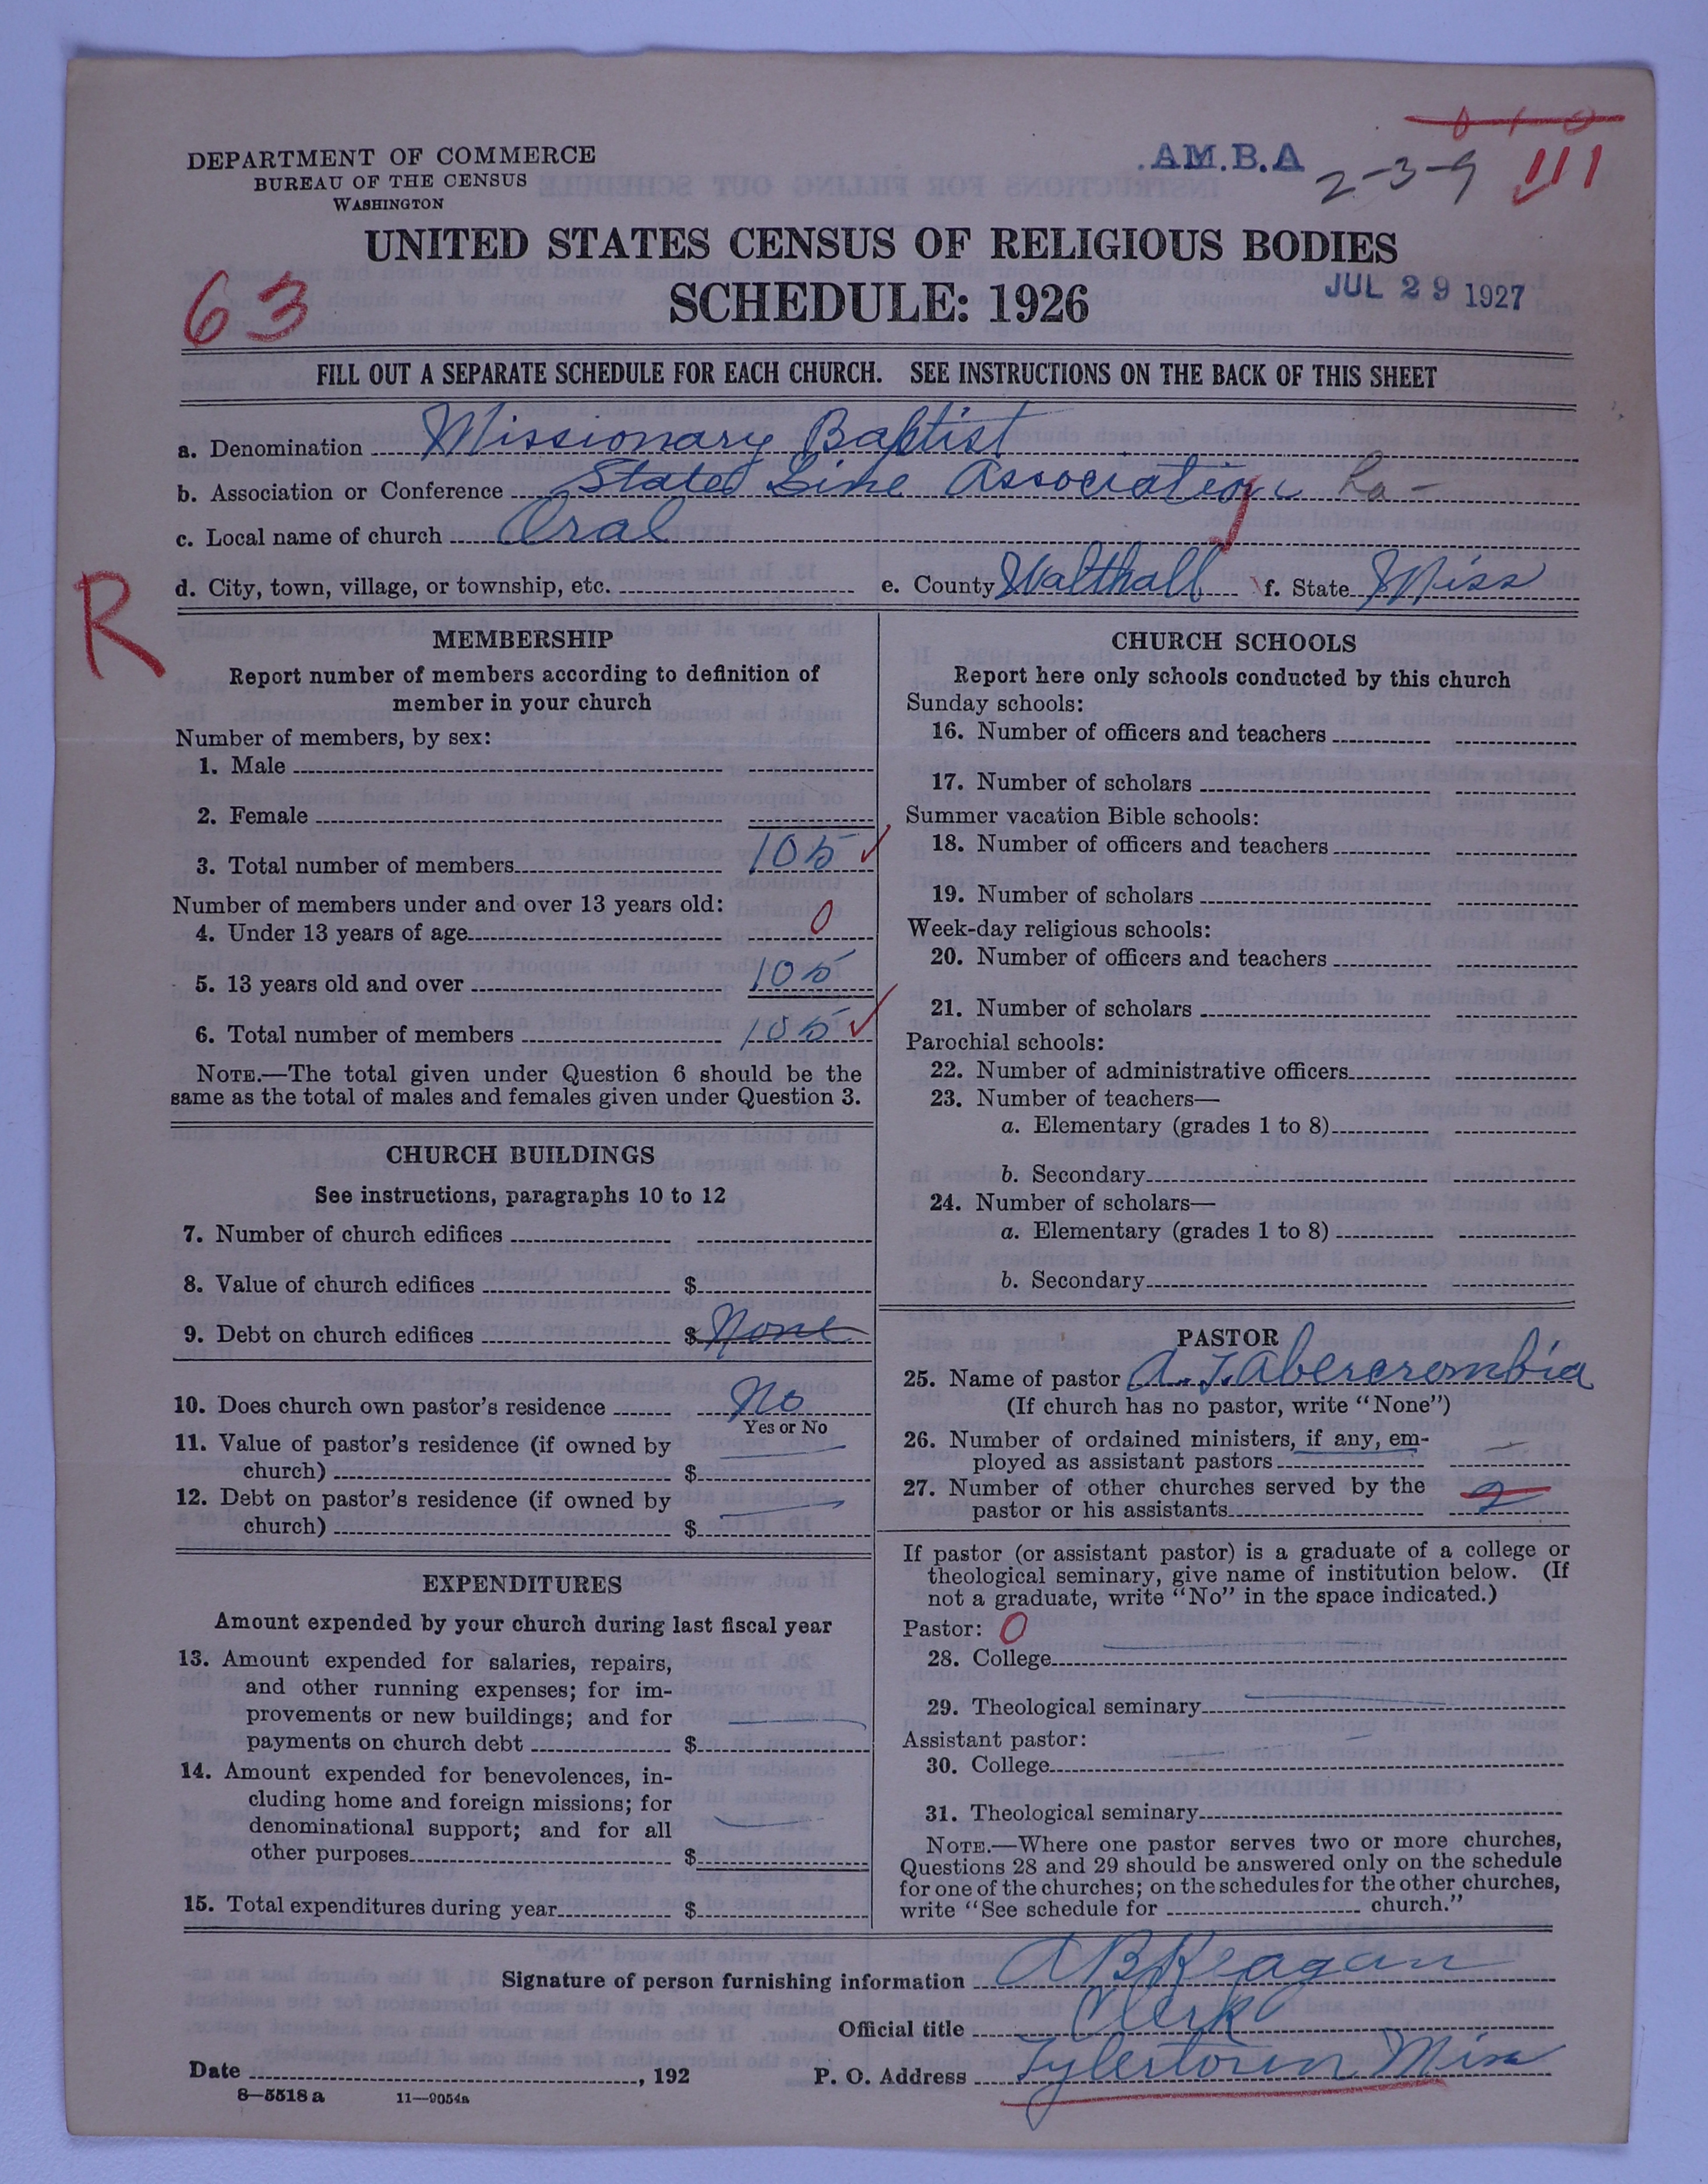 .AM.B.A
2-3-9 111
DEPARTMENT OF COMMERCE
BUREAU OF THE CENSUS
WASHINGTON
UNITED STATES CENSUS OF RELIGIOUS BODIES
63 SCHEDULE: 1926
JUL 29 1927
FILL OUT A SEPARATE SCHEDULE FOR EACH CHURCH. SEE INSTRUCTIONS ON THE BACK OF THIS SHEET
a. Denomination Missionary Baptist
b. Association or Conference State Line Association La-
c. Local name of church Oral
R
d. City, town, village, or township, etc. e. County Walthall f. State Miss
MEMBERSHIP
Report number of members according to definition of
member in your church
Number of members, by sex:
1. Male
2. Female
3. Total number of members 105
Number of members under and over 13 years old:
4. Under 13 years of age 0
5. 13 years old and over 105
6. Total number of members 105
NOTE.—The total given under Question 6 should be the
same as the total of males and females given under Question 3.
CHURCH BUILDINGS
See instructions, paragraphs 10 to 12
7. Number of church edifices
8. Value of church edifices $
9. Debt on church edifices $ None
10. Does church own pastor's residence No
Yes or No
11. Value of pastor's residence (if owned by
church) $
12. Debt on pastor's residence (if owned by
church) $
EXPENDITURES
Amount expended by your church during last fiscal year
13. Amount expended for salaries, repairs,
and other running expenses; for im-
provements or new buildings; and for
payments on church debt $
14. Amount expended for benevolences, in-
cluding home and foreign missions; for
denominational support; and for all
other purposes $
15. Total expenditures during year $
CHURCH SCHOOLS
Report here only schools conducted by this church
Sunday schools:
16. Number of officers and teachers
17. Number of scholars
Summer vacation Bible schools:
18. Number of officers and teachers
19. Number of scholars
Week-day religious schools:
20. Number of officers and teachers
21. Number of scholars
Parochial schools:
22. Number of administrative officers
23. Number of teachers—
a. Elementary (grades 1 to 8)
b. Secondary
24. Number of scholars—
a. Elementary (grades 1 to 8)
b. Secondary
PASTOR
25. Name of pastor A. J. Abercrombia
(If church has no pastor, write "None")
26. Number of ordained ministers, if any, em-
ployed as assistant pastors
27. Number of other churches served by the
pastor or his assistants 2
If pastor (or assistant pastor) is a graduate of a college or
theological seminary, give name of institution below. (If
not a graduate, write "No" in the space indicated.)
Pastor: 0
28. College
29. Theological seminary
Assistant pastor:
30. College
31. Theological seminary
NOTE.—Where one pastor serves two or more churches,
Questions 28 and 29 should be answered only on the schedule
for one of the churches; on the schedules for the other churches,
write "See schedule for church."
Signature of person furnishing information A B Reagan
Official title Clerk
Date , 192 P. O. Address Tylertown Miss
8—5518a 11—9054a